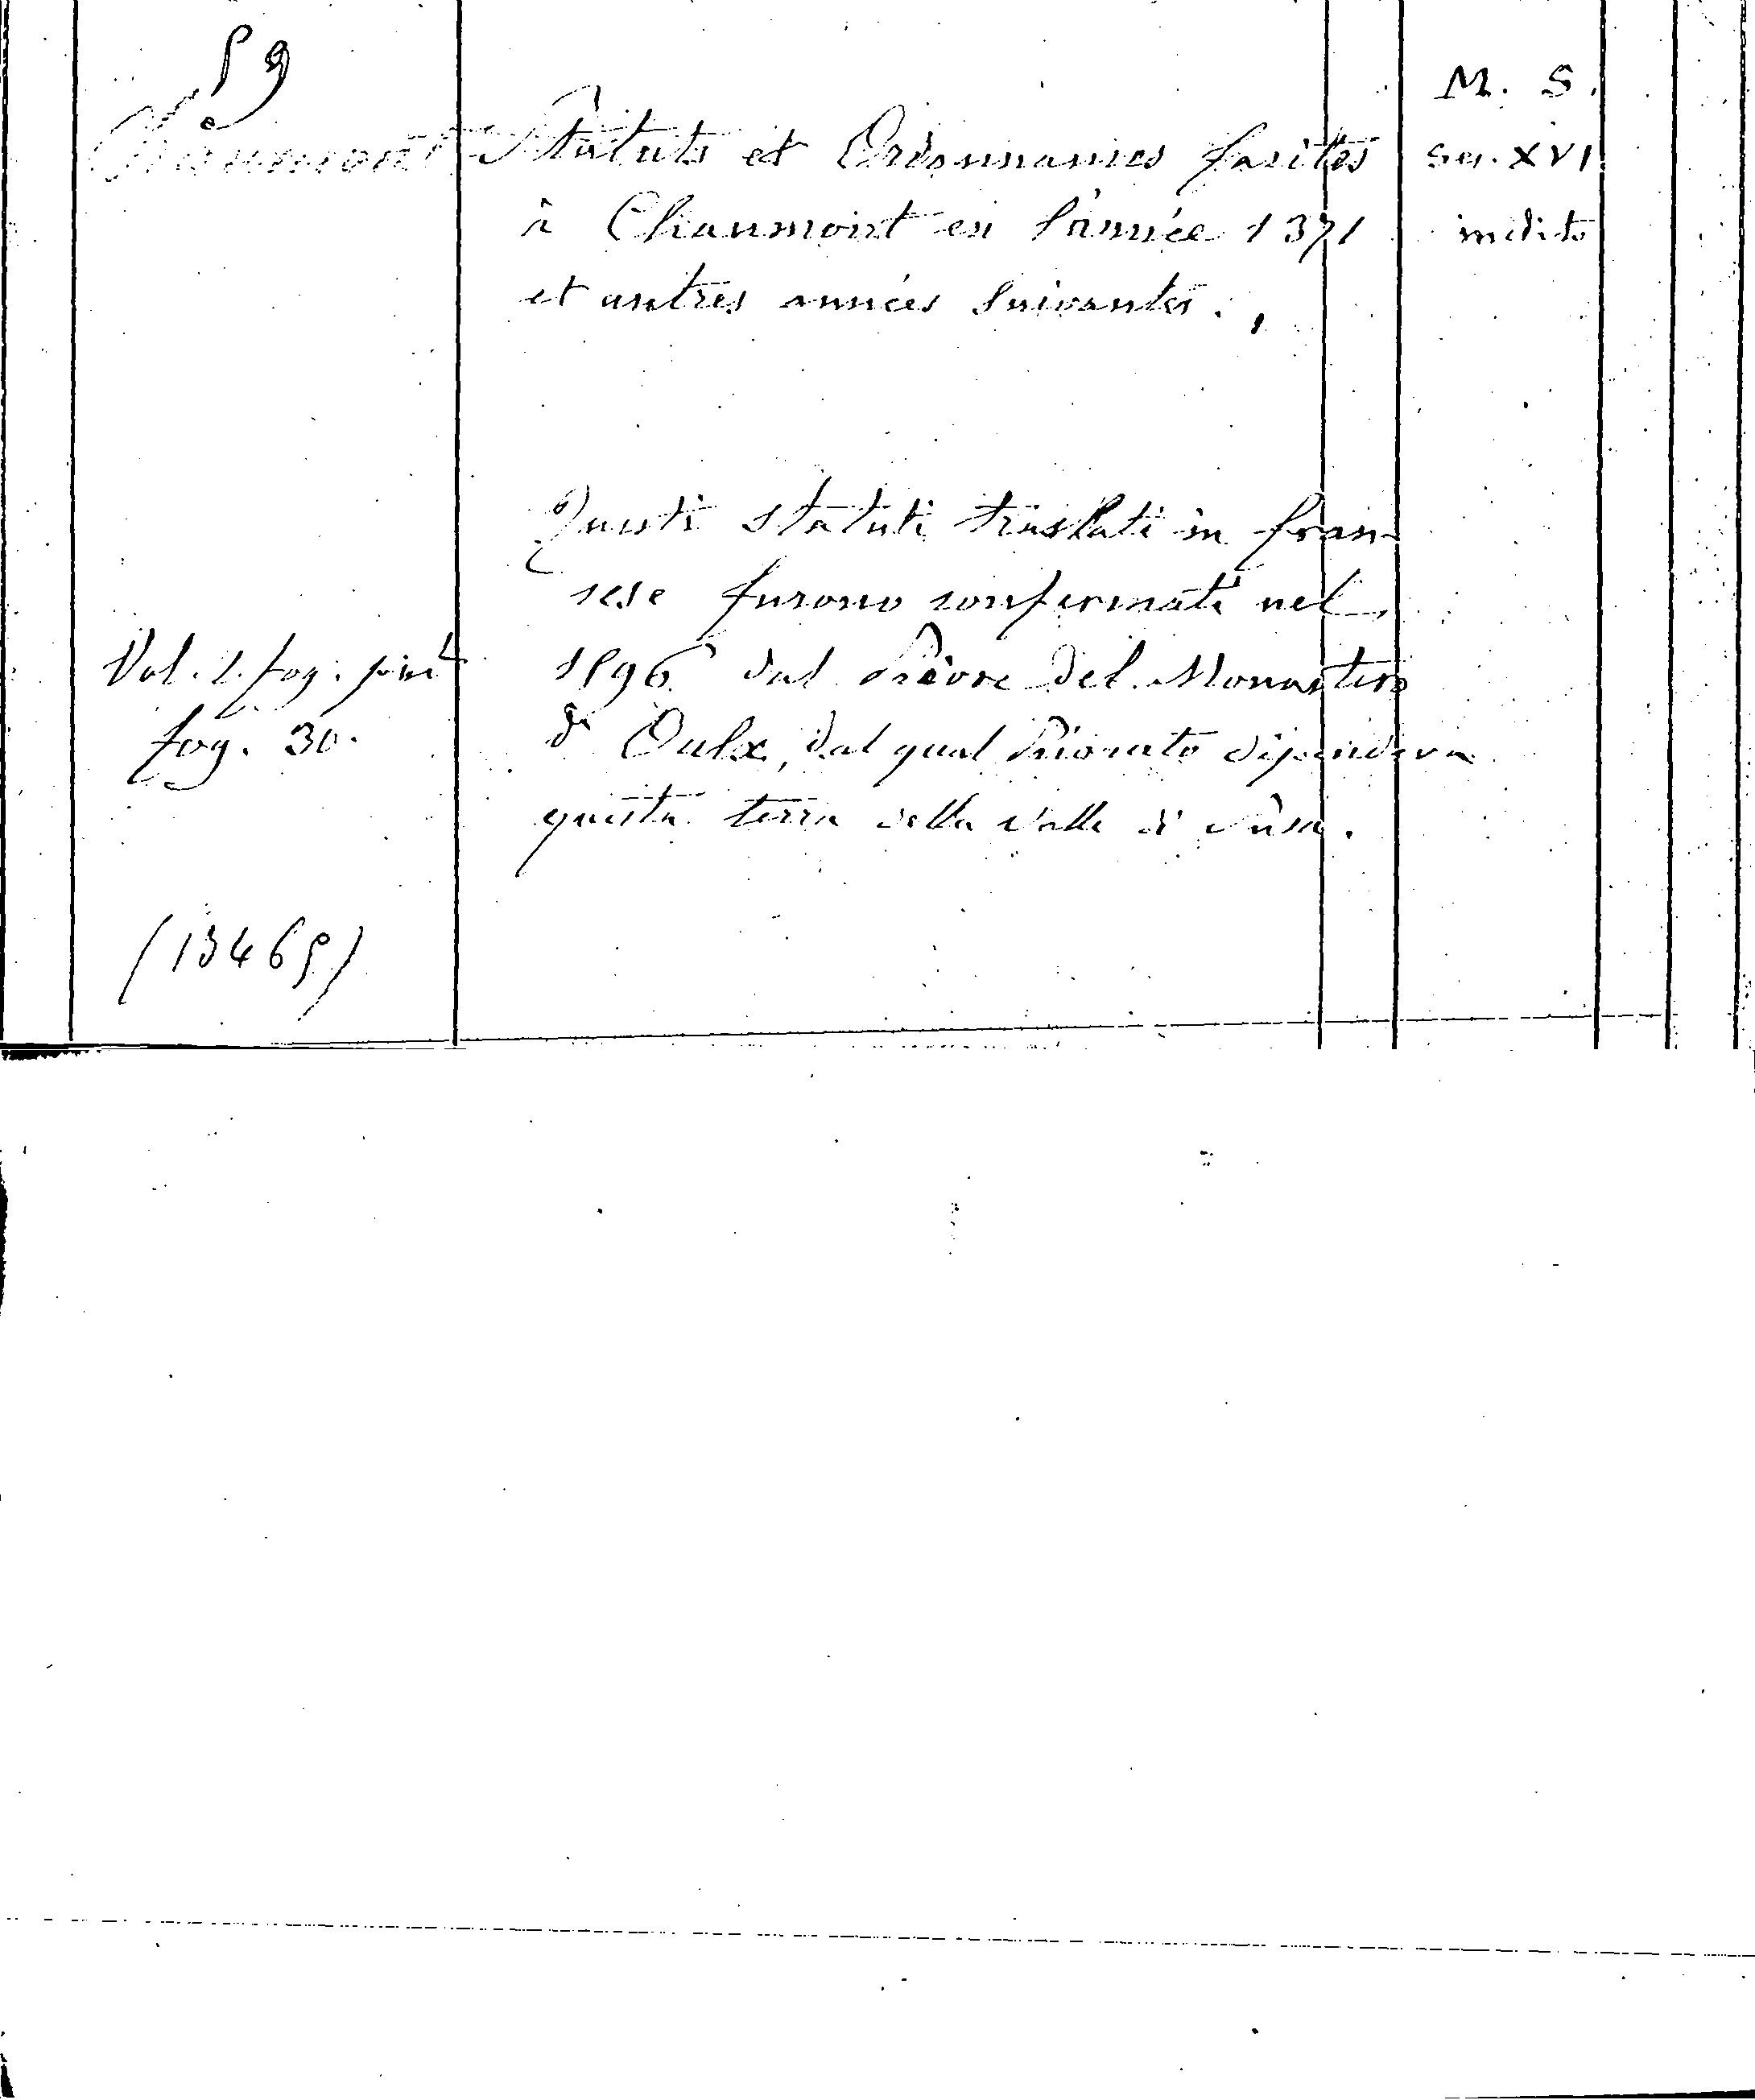 59
Chaumont
Statuts et Ordonnances faites
à Chaumont en l'année 1371
et autres années suivantes.
M. S.
Sec. XVI
inedito
Questi statuti traslati in fran-
cese furono confermati nel
1596 dal Priore del Monastero
di Oulx, dal qual Priorato dipendeva
questa terra della Valle di Susa.
Vol. 1. fog.
fog. 30.
(13465)